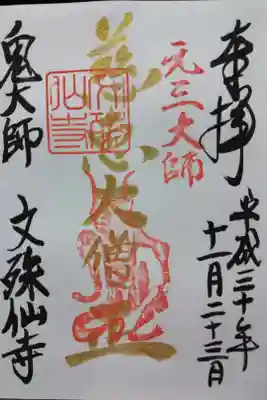 奉拝
平成三十年
十一月二十三日
元三大師
慈恵大僧正
文殊仙寺
鬼大師
文殊仙寺